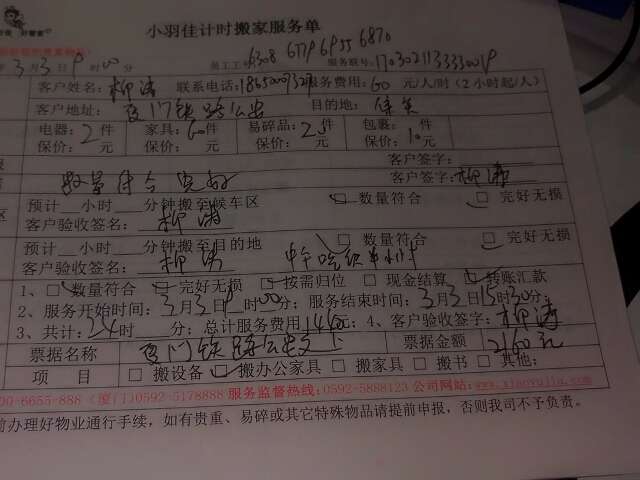 小羽佳计时搬家服务单
员工工 6308 6779 6955 6870 服务联号:170302113333001P
3月3日9时00分
客户姓名:柳涛 联系电话: 服务费用:60 元/人/时(2小时起/人)
客户地址:厦门铁路公安 目的地:
电器:2件 家具:60件 易碎品:25件 包裹: 件
保价: 元 保价: 元 保价: 元 保价:10元
客户签字:
数量符合 完好 客户签字:柳涛
预计 小时 分钟搬至候车区 数量符合 完好无损
客户验收签名:柳涛
预计 小时 分钟搬至目的地 数量符合 完好无损
客户验收签名:柳涛
1、 数量符合 完好无损 按需归位 现金结算 转账汇款
2、服务开始时间:3月3日9时00分;服务结束时间:3月3日15时30分;
3、共计:24时 分;总计服务费用1440;4、客户验收签字:柳涛
票据名称 厦门铁路公安 票据金额 2160元
项 目 搬设备 搬办公家具 搬家具 搬书 其他:
00-6655-888(厦门)0592-5178888 服务监督热线:0592-5888123 公司网站:www.xiaoyujia.com
前办理好物业通行手续,如有贵重、易碎或其它特殊物品请提前申报,否则我司不予负责。